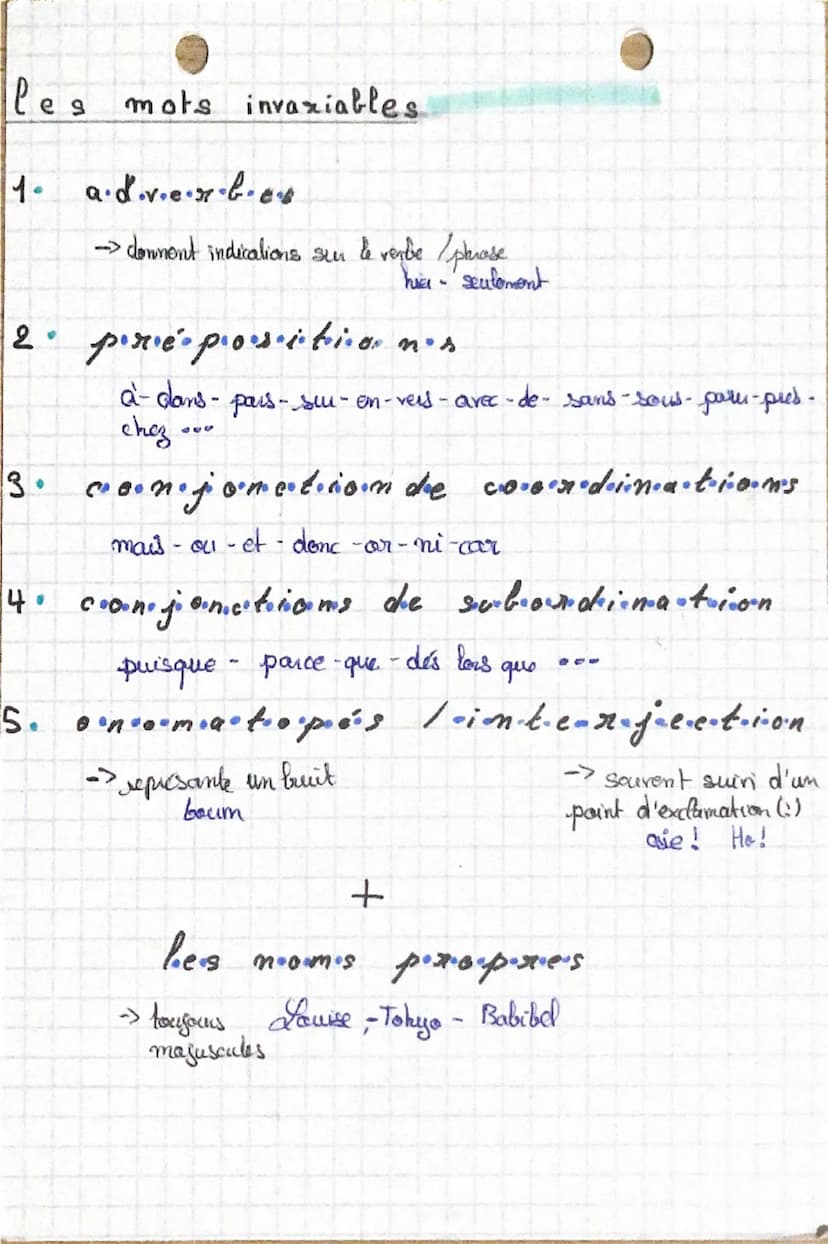 les mots invariables
1. adverbes
-> donnent indications sur le verbe / phrase
hier - seulement
2. prépositions
à - dans - pars - sur - en - vers - avec - de - sans - sous - par - près -
chez ...
3. conjonction de coordinations
mais - ou - et - donc - or - ni - car
4. conjonctions de subordination
puisque - parce-que - dés lors que ...
5. onomatopés / interjection
-> représante un bruit -> souvent suivi d'un
boum point d'exclamation (!)
aie ! Ho !
+
les noms propres
-> toujours Louise, - Tokyo - Babibel
majuscules